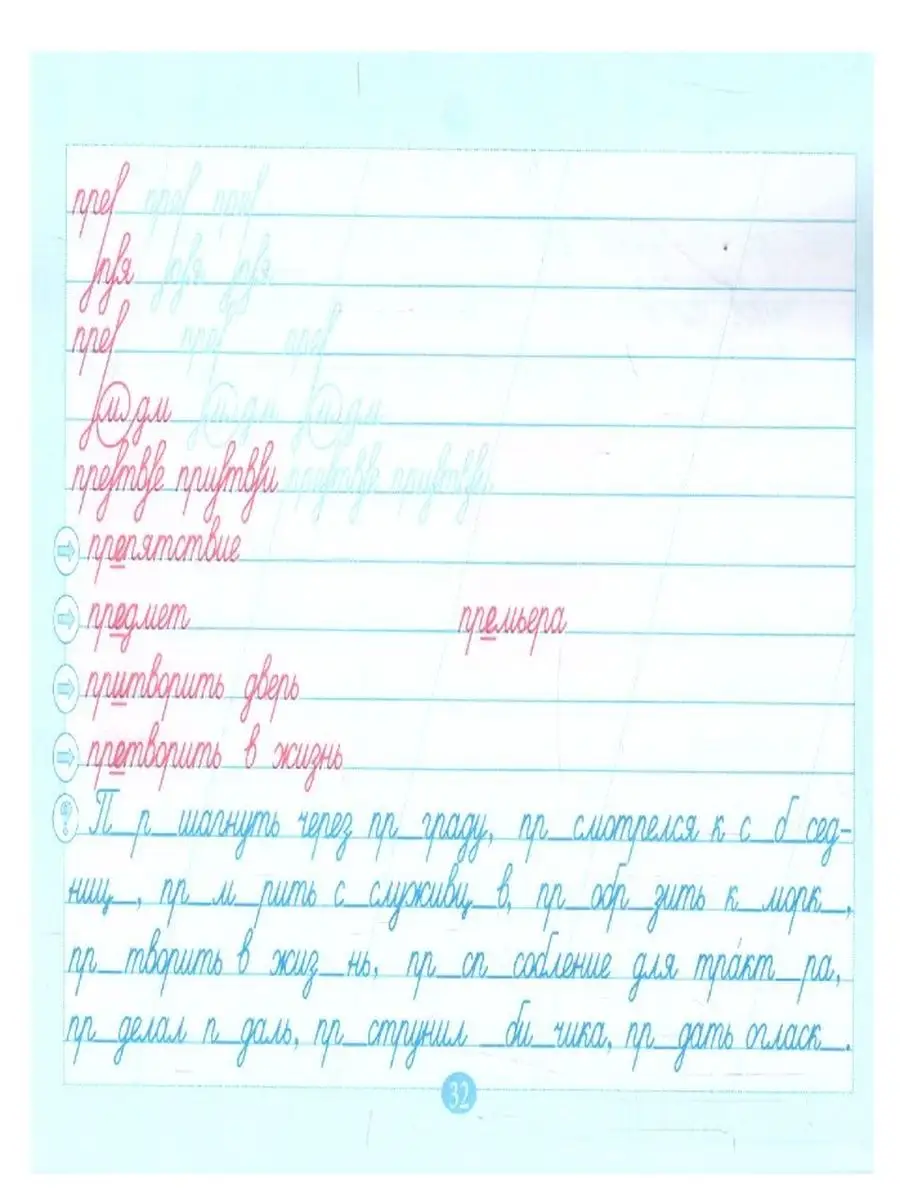 прер прер прер
рвя рвя рвя
прер прер прер
и дм и дм и дм
препятствие
предмет премьера
притворить дверь
претворить в жизнь
? П_р_шагнуть через пр_граду, пр_смотрелся к с_б_сед-
ниц_, пр_м_рить с_служивц_в, пр_обр_зить к_морк_,
пр_творить в жиз_нь, пр_сп_собление для тра́кт_ра,
пр_делал п_даль, пр_струнил _би_чика, пр_дать огласк_.
32